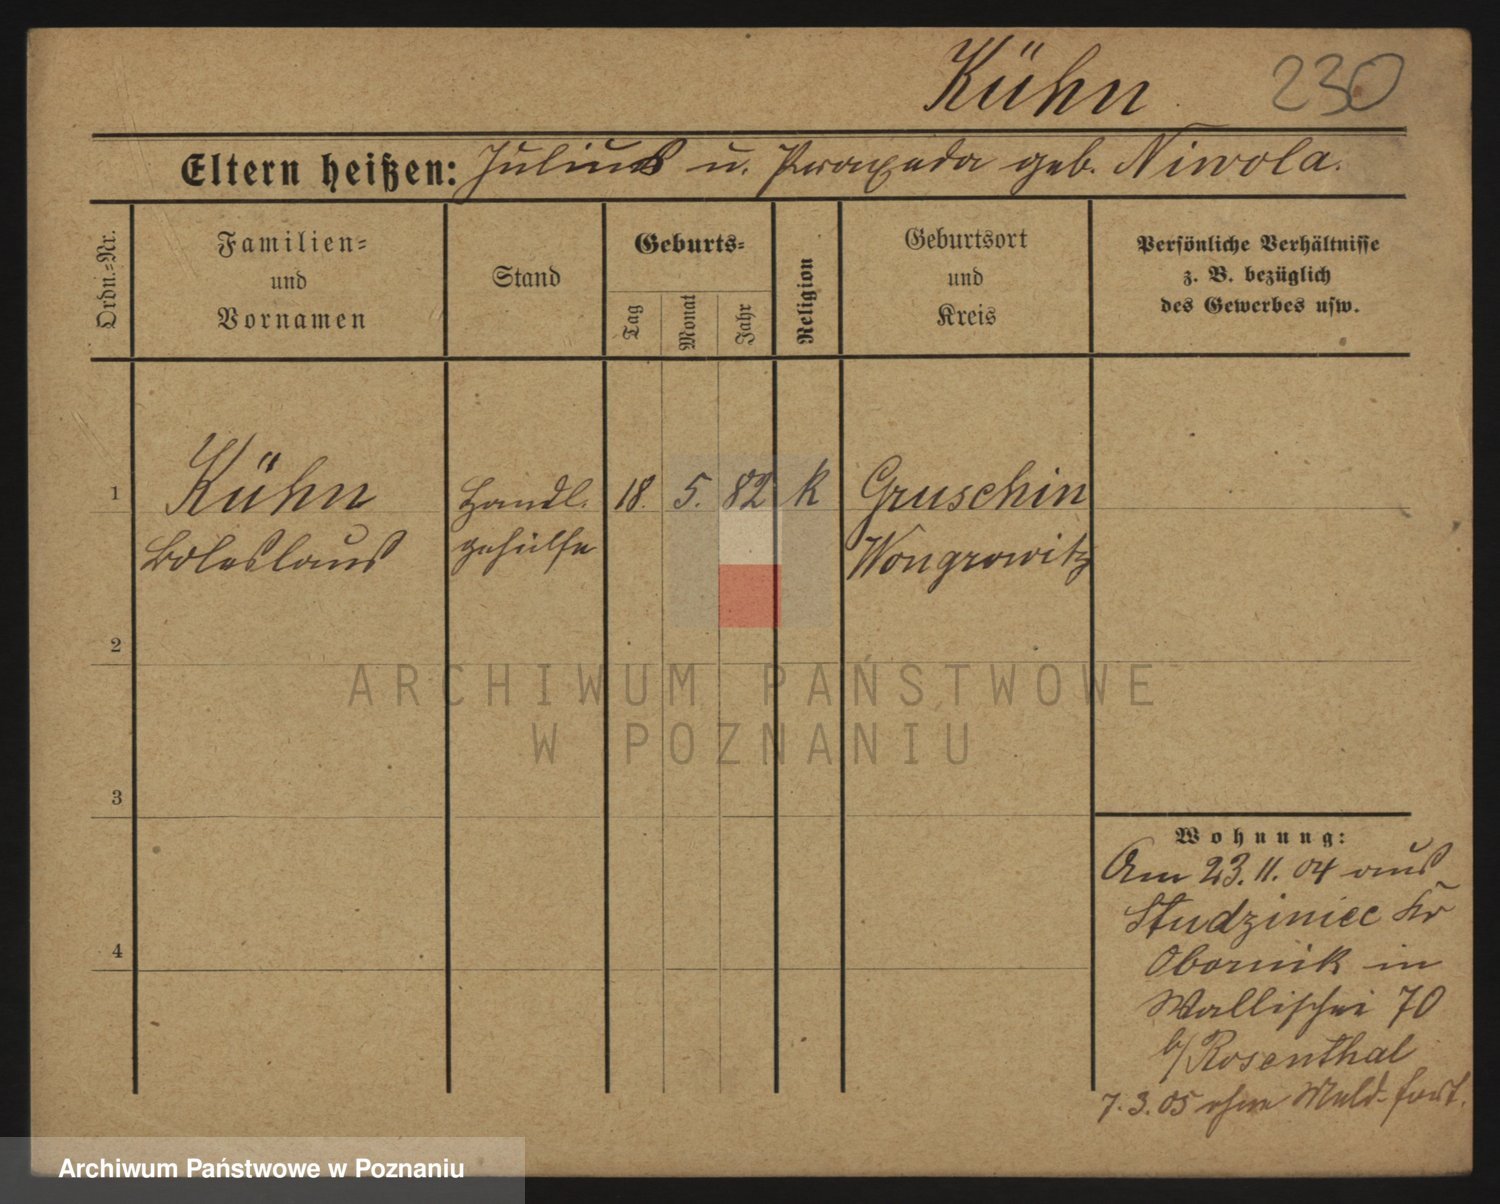 Kühn 230
Eltern heißen: Julius u. Praxeda geb. Niwola.
Ordn.-Nr.
Familien-
und
Vornamen
Stand
Geburts-
Tag
Monat
Jahr
Religion
Geburtsort
und
Kreis
Persönliche Verhältnisse
z. B. bezüglich
des Gewerbes usw.
1 Kühn Handl. 18. 5. 82 k Gruschin
Boleslaus gehülfe Wongrowitz
2
3
4
Wohnung:
Am 23.11.04 aus
Studziniec Kr
Obornik in
Wallischei 70
b/ Rosenthal
7.3.05 ohne Meld. fort.
ARCHIWUM PAŃSTWOWE
W POZNANIU
Archiwum Państwowe w Poznaniu